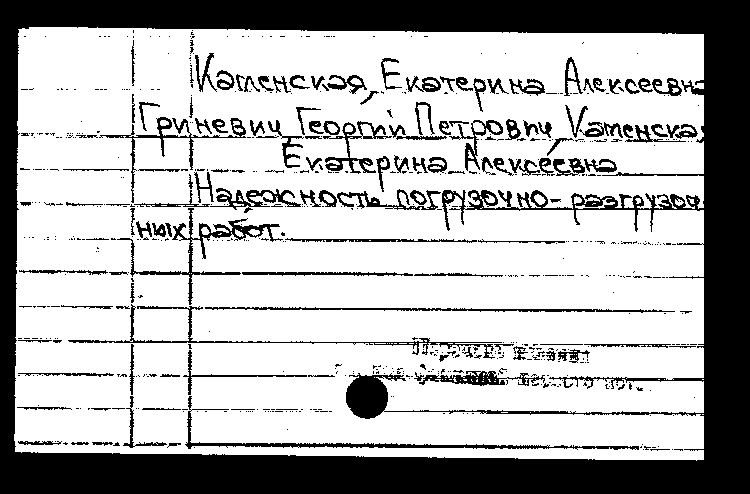 Каменская, Екатерина Алексеевна
Гриневич, Георгий Петрович, Каменская,
Екатерина Алексеевна
Надежность погрузочно-разгрузоч-
ных работ.
фамилией первого авт.